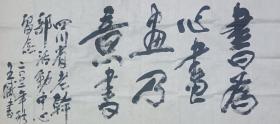 書為
心畫
畫乃
意書
四川省老幹
部活動中心
留念
二〇〇二年秋